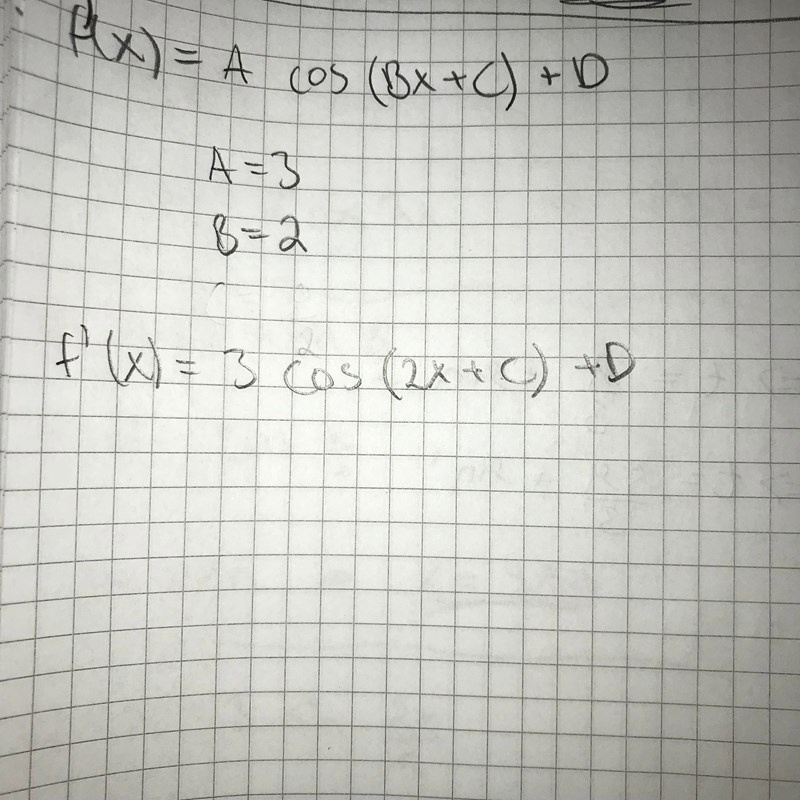 f'(x) = A cos (Bx + C) + D
A = 3
B = 2
f'(x) = 3 cos (2x + C) + D